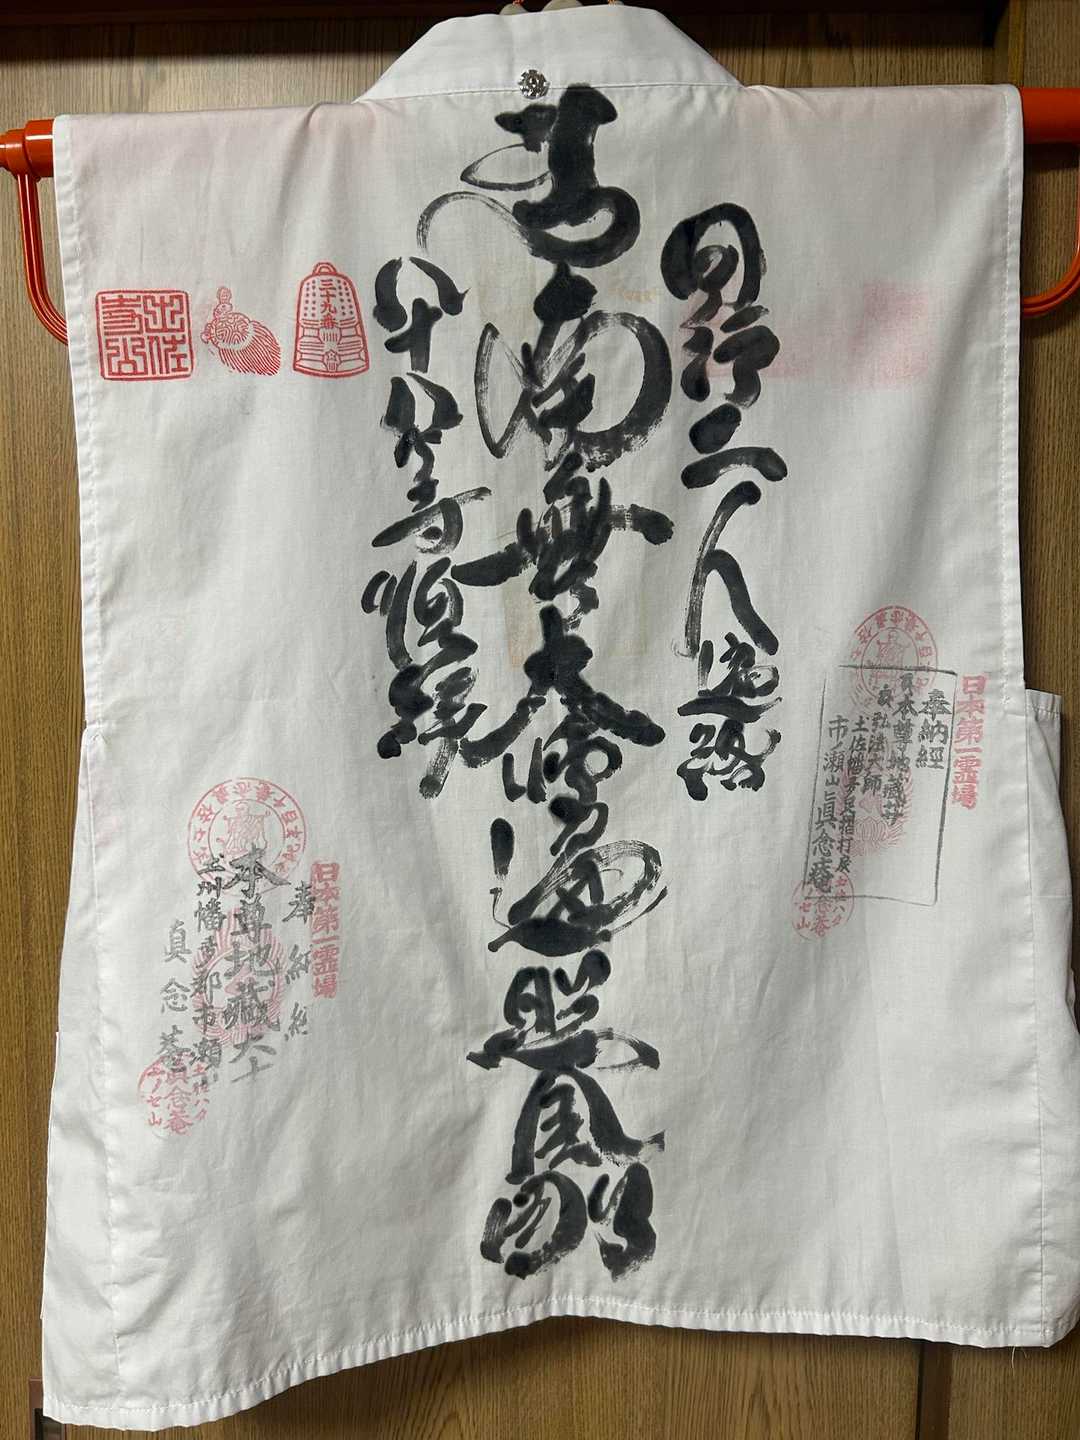 同行二人遍路
南無大師遍照金剛
八十八ヶ寺
日本第一霊場
奉納経
本尊地蔵
弘法大師
土佐幡多足摺打戻
市ノ瀬山 眞念庵
三十九番
日本第一霊場
奉納経
本尊地蔵大士
土州幡多郡市瀬
眞念菴
土佐ハタ
眞念菴
市ノセ山